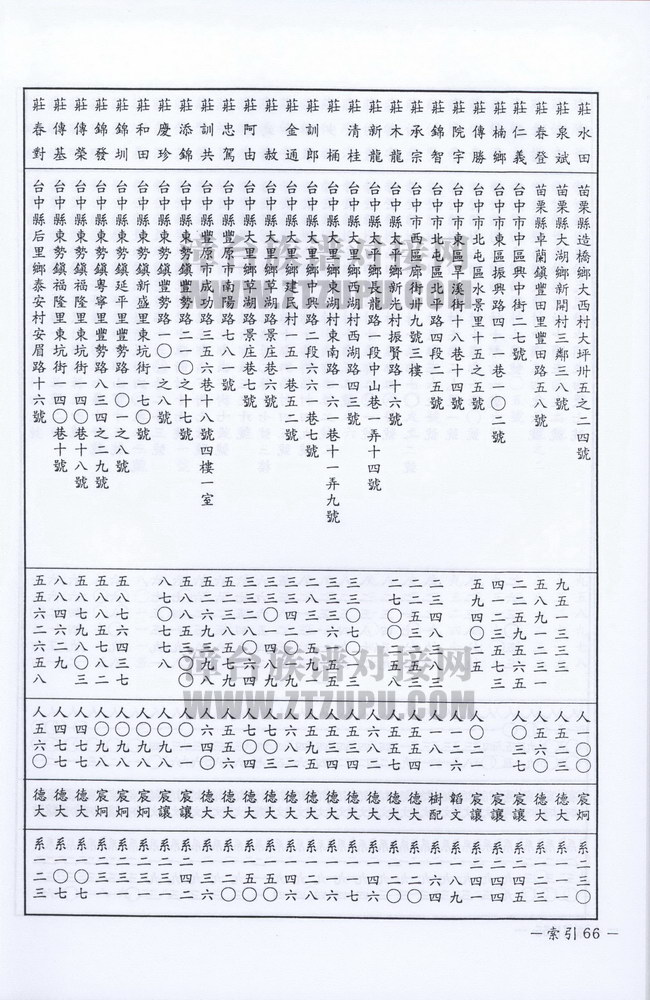 莊水田 苗栗縣造橋鄉大西村大坪卅五之二四號 人一〇〇 宸炯 系二三〇
莊泉斌 苗栗縣大湖鄉新開村三鄰三八號 九五一三三三 人五二三 德大 系一一一
莊春登 苗栗縣卓蘭鎮豐田里豐田路五八號 五八九一二三一 人五六〇 德大 系一二三
莊仁義 台中市中區興中街二七號 二二五九五六五 人〇三七 宸讓 系二四五
莊楠鄉 台中市東區振興路四一一巷一〇二號 四一一二五七三 宸讓 系二四一
莊傳勝 台中市北屯區水景里十五之五號 五九四〇二五 人〇二一 宸讓
莊院宇 台中市東區旱溪街十八巷十四號 人一二六 韜文 系一八九
莊錦智 台中市北屯區北平路四段二五號 二三四八八三 人一八一 樹配 系六四
莊承宗 台中市西區廊街卅九號三樓 人五五四 德大 系一二〇
莊木龍 台中縣太平鄉新光村振賢路十六號 二七〇〇五八 德大 系一四六
莊新龍 台中縣太平鄉長龍路一段中山巷一弄十四號 人六八二 德大 系一四六
莊清桂 台中縣大里鄉西湖村西湖路四三號 德大
莊桶 台中縣大里鄉東湖村東南路一六一巷十一弄九號 人五九五 德大
莊訓郎 台中縣大里鄉中興路二段六六一巷七號 德大 系一二八
莊金通 台中縣大里鄉建民村一五一巷五二號 人六八二 德大 系一四六
莊故 台中縣大里鄉草湖路景庄巷六號 人七〇三 德大 系一五〇
莊阿由 台中縣大里鄉草湖路景庄巷七號 人七〇四 德大 系一五〇
莊忠駕 台中縣豐原市南陽路七八一號 人五五六 德大 系一二〇
莊訓共 台中縣豐原市成功路三五六巷十八號四樓一室 人六四〇 德大 系一三六
莊添錦 台中縣東勢鎮豐勢路二一〇之十七號 人〇九八 宸讓 系二四二
莊慶珍 台中縣東勢鎮豐勢路一〇一之八號 八七〇七七八 人〇一一 宸讓 系二三一
莊和田 台中縣東勢鎮新盛里東坑街一七〇號 人〇九八 宸炯 系二三一
莊錦圳 台中縣東勢鎮延平里豐勢路一〇一之八號 五八七六四三七 人〇九八 宸炯 系二三一
莊錦發 台中縣東勢鎮粵寧里豐勢路八三四之二九號 八八五八七八二 宸炯 系二三一
莊傳榮 台中縣東勢鎮福隆里東坑街一四〇巷十八號 五八七九八〇三 人四七七 德大 系一〇七
莊傳基 台中縣東勢鎮福隆里東坑街一四〇巷十號 八八四六二九 人四七七 德大 系一〇七
莊春對 台中縣后里鄉泰安村安眉路十六號 五五六二六五八 人五六〇 德大 系一二三
—索引66—
漳台族谱对接网
WWW.ZTZUPU.COM
漳台族谱对接网
WWW.ZTZUPU.COM